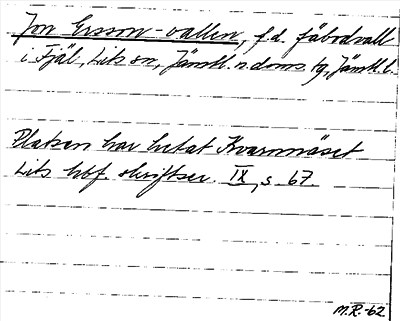 Jon Ersson-vallen, f.d. fäbodvall
i Fjäl, Lits sn, Jämtl. n. doms. tg, Jämtl. l.
Platsen har hetat Kvarnnäset
Lits hbf. skriftser. IX, s 67.
M.R.-62